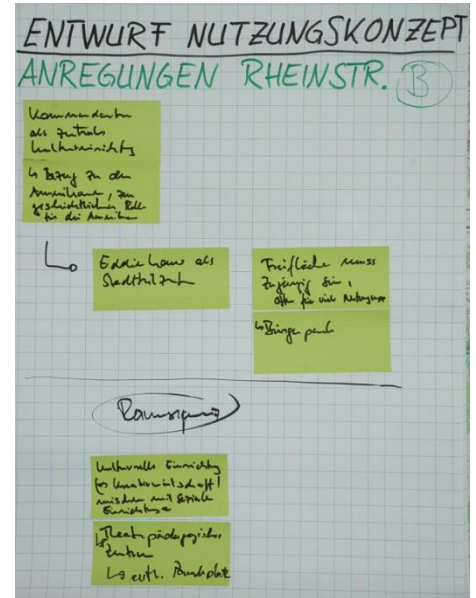 ENTWURF NUTZUNGSKONZEPT
ANREGUNGEN RHEINSTR. B
Kommandantur
als zentrale
Kultureinrichtg
↳ Bezug zu den
Amerikanern, zur
geschichtlichen Rolle
für die Amerikaner
Eddie haus als
Stadtteilzentr
Freifläche muss
Zugängig sein,
offen für viele
↳ Bürgerpark
Kulturelle Einrichtg
mischen mit soziale
Einrichtungen
↳ Theaterpädagogisches
Zentrum
↳ evtl.